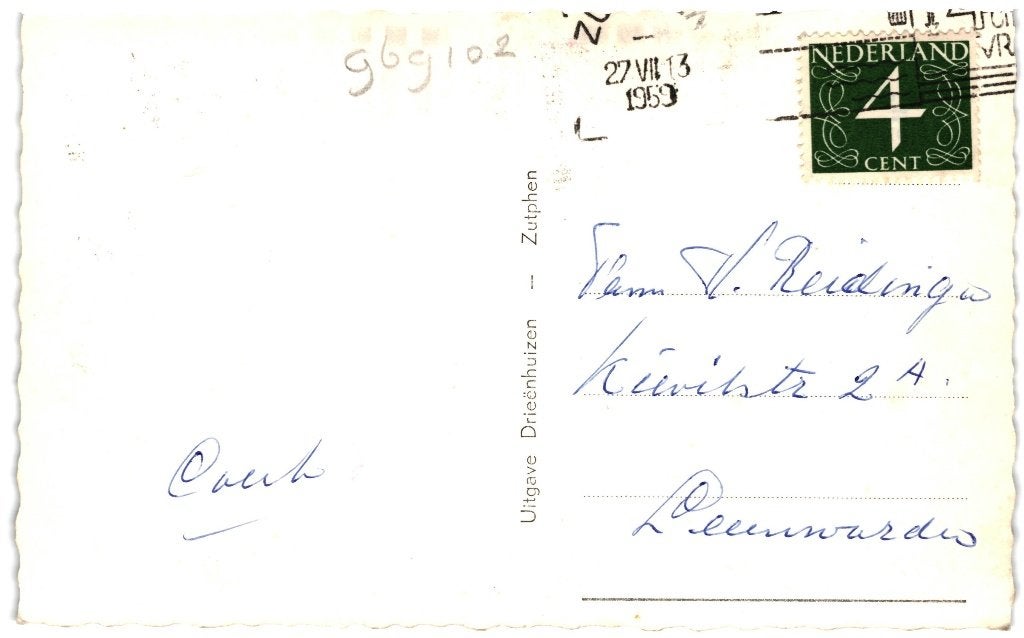 gbg102
27 VII 13
1959
NEDERLAND
4
CENT
Uitgave Drieënhuizen – Zutphen
Fam V. Reidinga
Kievitstr 2 A.
Leeuwarden
Coert